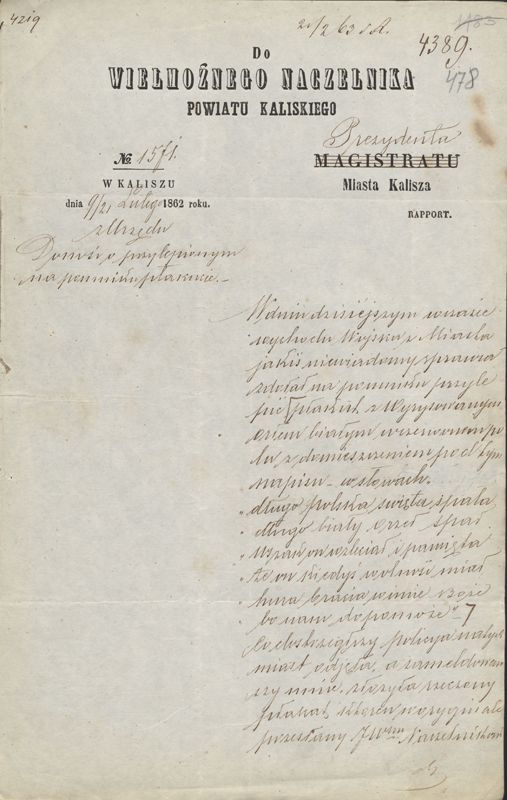 4389.
478
Do
WIELMOŻNEGO NACZELNIKA
POWIATU KALISKIEGO
Prezydenta
MAGISTRATU
Miasta Kalisza
RAPPORT.
№ 1571.
W KALISZU
dnia 9/21 Lutego 1862 roku.
z Urzędu
Donosi o przylepionym
na pomniku plakacie.
W dniu dzisiejszym w czasie
wychodu Wojska z Miasta
jakiś niewiadomy sprawca
zdołał na pomniku przyle
pić plakat z Wyrysowanym
orłem białym w czerwonem po
lu z domieszczeniem pod tym
napisu w słowach.
„długo Polska święta spała
„długo biały orzeł spał
on wzleciał i pamięta
że on kiedyś wolność miał
hura bracia w imie Boże
bo nam dopomoże"
Co dostrzegłszy policyja natych
miast odjęła, a zameldowaw
szy mnie złożyła rzeczony
plakat, który w oryginale
przesłany JW Naczelnikowi